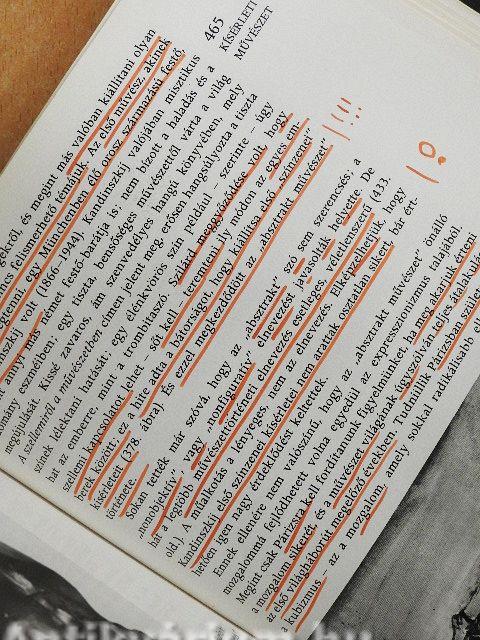 465
KÍSÉRLETI
MŰVÉSZET
gekről, és megint más valóban kiállítani olyan
felismerhető témájuk. Az első művész, akinek
egy Münchenben élő orosz származású festő,
volt (1866–1944). Kandinszkij valójában misztikus
annyi más német festő-barátja is; nem bízott a haladás és a
eszméiben; egy tiszta, bensőséges művészettől várta a világ
megújulását. Kissé zavaros, ám szenvedélyes hangú könyvében, mely
A szellemiről a művészetben címen jelent meg, erősen hangsúlyozta a tiszta
színek lélektani hatását; egy élénkvörös szín például – szerinte – úgy
hat az emberre, mint a trombitaszó. Szilárd meggyőződése volt, hogy
szellemi kapcsolatot lehet – sőt kell – teremteni ily módon az egyes em-
berek között; ez a hite adta a bátorságot, hogy kiállítsa első „színzene”
kísérleteit (378. ábra). És ezzel megkezdődött az „absztrakt művészet”
története.
Sokan tették már szóvá, hogy az „absztrakt” szó sem szerencsés; a
„nonobjektív” vagy „nonfiguratív” elnevezést javasolták helyette. De
hát a legtöbb művészettörténeti elnevezés esetleges, véletlenszerű (433.
old.). A műalkotás a lényeges, nem az elnevezés. Elképzelhetjük, hogy
Kandinszkij első színzenei kísérletei nem arattak osztatlan sikert, bár ért-
hetően igen nagy érdeklődést keltettek.
Ennek ellenére nem valószínű, hogy az „absztrakt művészet” önálló
mozgalommá fejlődhetett volna egyedül az expresszionizmus talajából.
Megint csak Párizsra kell fordítanunk figyelmünket, ha meg akarjuk érteni
a mozgalom sikerét, és a művészet világának úgyszólván teljes átalakulás
az első világháborút megelőző években. Tudniillik Párizsban szület
a kubizmus, az a mozgalom, amely sokkal radikálisabb el